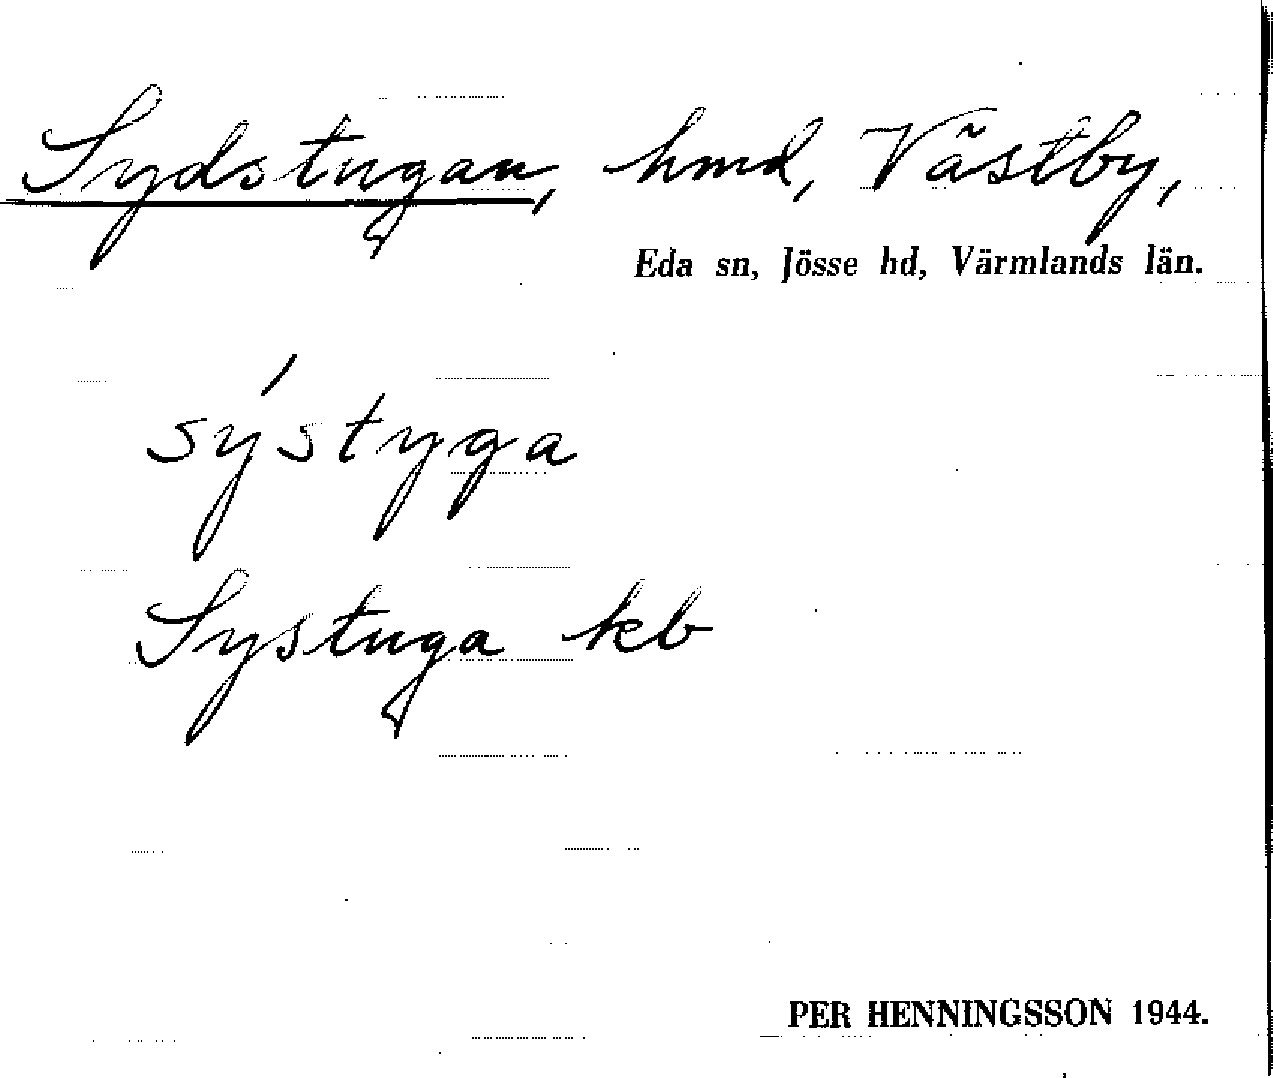 Sydstugan, hmd, Västby,
Eda sn, Jösse hd, Värmlands län.
sýstyga
Systuga kb
PER HENNINGSSON 1944.